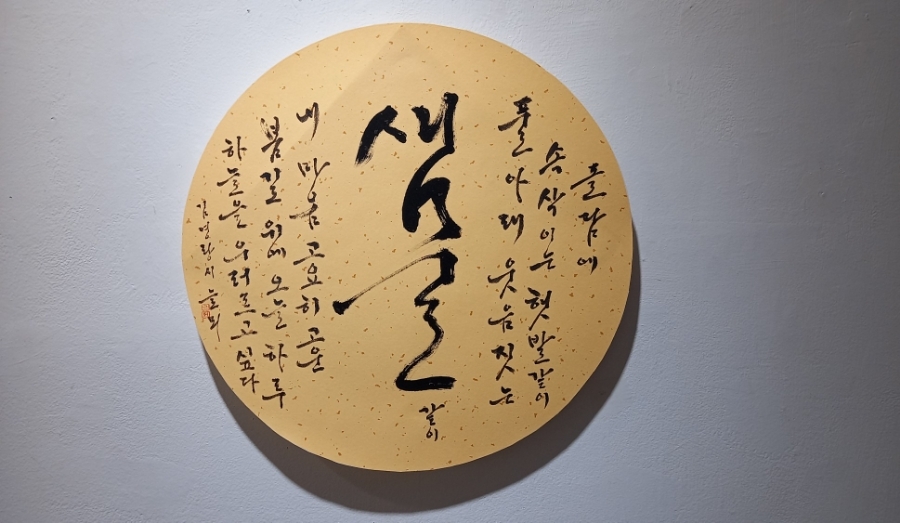 돌담에
속삭이는 햇발같이
풀 아래 웃음 짓는
샘물
같이
내 마음 고요히 고운
봄길 위에 오늘 하루
하늘을 우러르고 싶다
김영랑 시